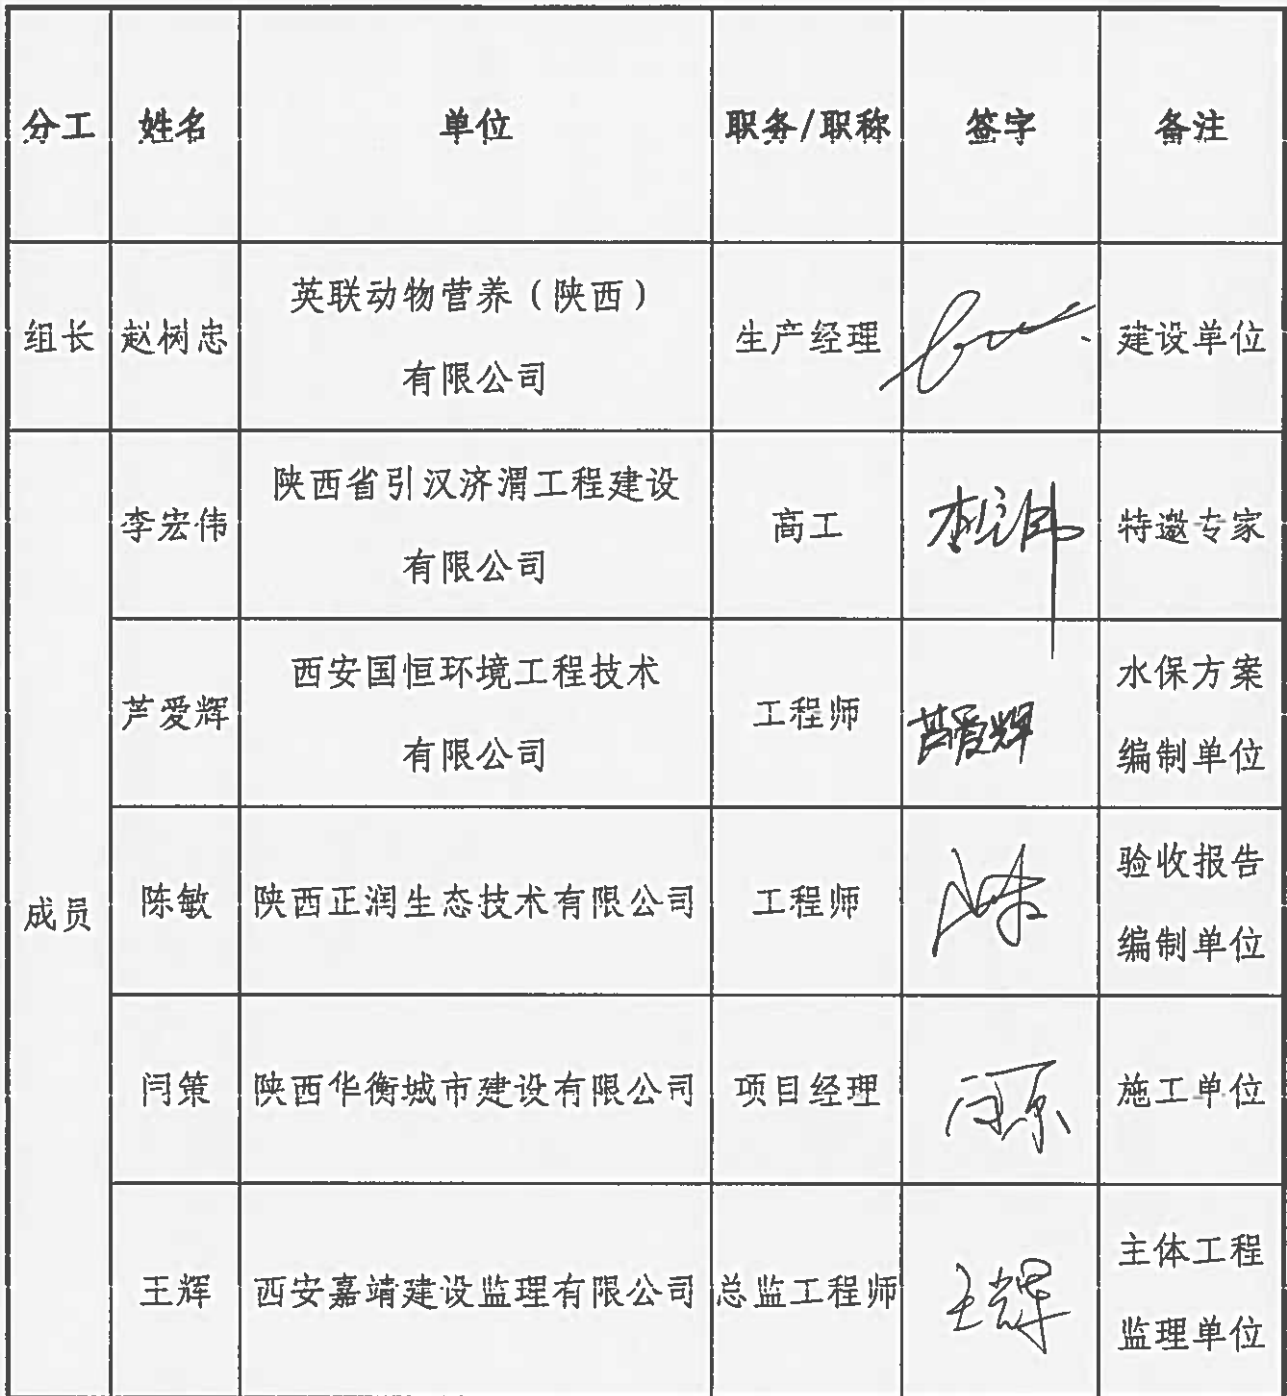 分工 姓名 单位 职务/职称 签字 备注
组长 赵树忠 英联动物营养（陕西） 生产经理 建设单位
有限公司
成员
李宏伟 陕西省引汉济渭工程建设 高工 李宏伟 特邀专家
有限公司
芦爱辉 西安国恒环境工程技术 工程师 芦爱辉 水保方案
有限公司 编制单位
陈敏 陕西正润生态技术有限公司 工程师 验收报告
编制单位
闫策 陕西华衡城市建设有限公司 项目经理 施工单位
王辉 西安嘉靖建设监理有限公司 总监工程师 王辉 主体工程
监理单位